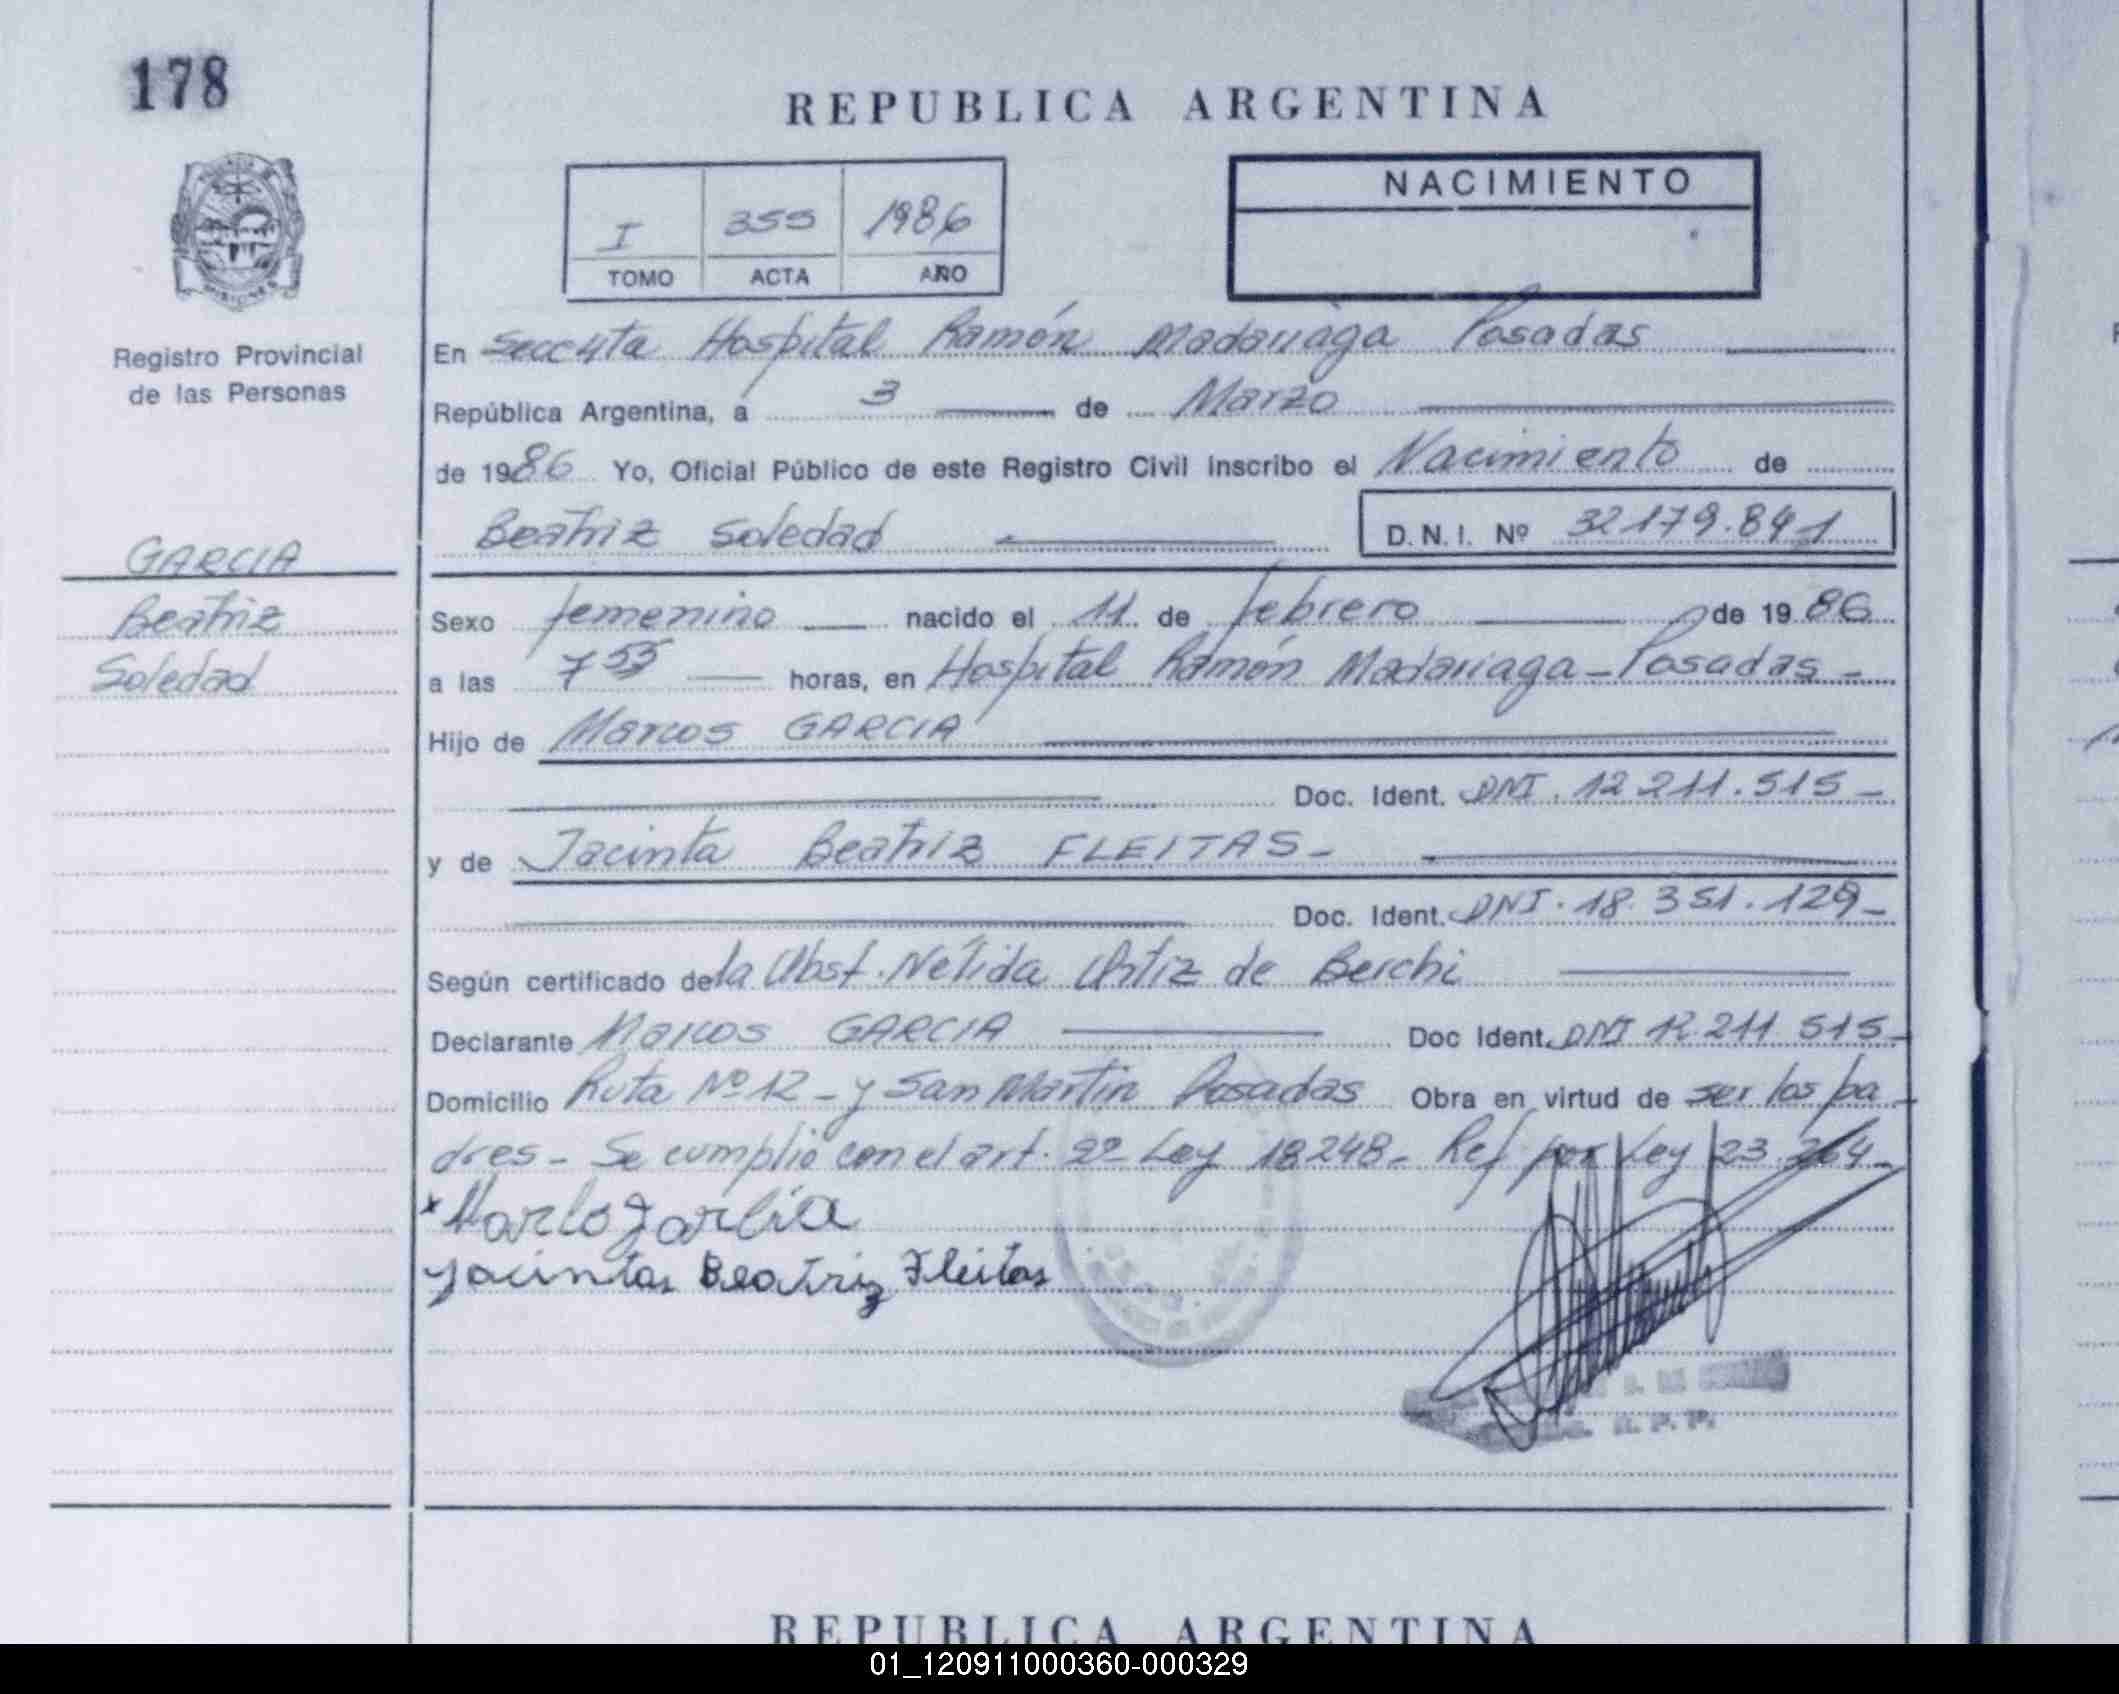 178
REPUBLICA ARGENTINA
NACIMIENTO
I 355 1986
TOMO ACTA AÑO
MISIONES
Registro Provincial
de las Personas
En Seccita Hospital Ramón Madariaga Posadas
República Argentina, a 3 de Marzo
de 1986 Yo, Oficial Público de este Registro Civil inscribo el Nacimiento de
Beatriz Soledad D.N.I. Nº 32179.841
GARCIA
Beatriz
Soledad
Sexo femenino nacido el 11 de febrero de 1986
a las 7 55 horas, en Hospital Ramón Madariaga - Posadas -
Hijo de Marcos GARCIA
Doc. Ident. DNI. 12 211.515 -
y de Jacinta Beatriz FLEITAS -
Doc. Ident. DNI. 18.351.129 -
Según certificado de la Obst. Nélida Ortiz de Berchi
Declarante Marcos GARCIA Doc Ident. DNI 12.211 515 -
Domicilio Ruta Nº 12 - y San Martin Posadas Obra en virtud de ser los pa
dres - Se cumplió con el art. 2º Ley 18248 - Ref por Ley 23.264 -
Jacintas Beatriz Fleitas
R. P. P.
REPUBLICA ARGENTINA
01_120911000360-000329